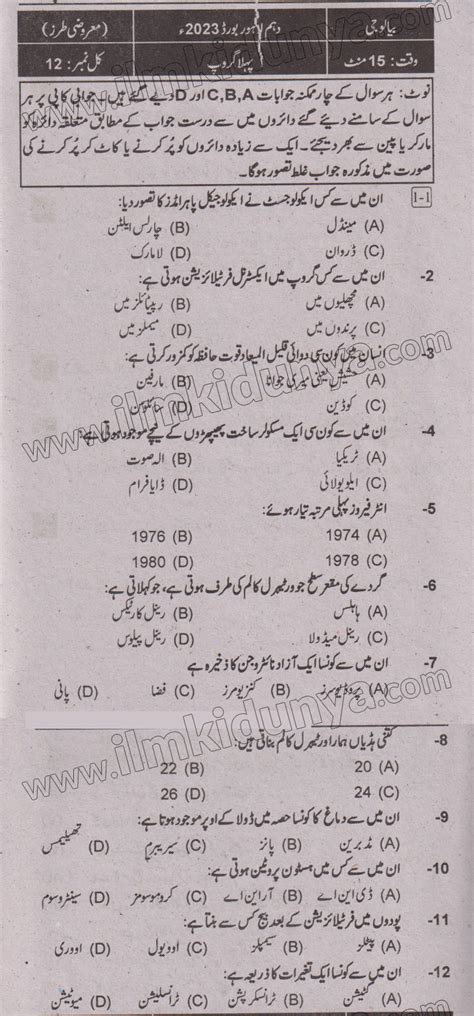 بیالوجی دہم لاہور بورڈ 2023ء (معروضی طرز)
وقت: 15 منٹ پہلا گروپ کل نمبر: 12
نوٹ: ہر سوال کے چار ممکنہ جوابات C,B,A اور D دیے گئے ہیں۔ جوابی کاپی پر ہر
سوال کے سامنے دیے گئے دائروں میں سے درست جواب کے مطابق متعلقہ دائرہ کو
مارکر یا پین سے بھر دیجئے۔ ایک سے زیادہ دائروں کو پُر کرنے یا کاٹ کر پُر کرنے کی
صورت میں مذکورہ جواب غلط تصور ہوگا۔
1-1 ان میں سے کس ایکولوجسٹ نے ایکولوجیکل پاہرامڈز کا تصور دیا:
(A) مینڈل (B) چارلس ایلٹن
(C) ڈروان (D) لامارک
2- ان میں سے کس گروپ میں ایکسٹرنل فرٹیلائزیشن ہوتی ہے:
(A) مچھلیوں میں (B) ریپٹائلز میں
(C) پرندوں میں (D) میملز میں
3- انسان میں کون سی دوائی قلیل المیعاد قوت حافظہ کو کمزور کرتی ہے:
(A) حشیش یعنی میری جوانا (B) مارفین
(C) کوڈین (D) سائلوسن
4- ان میں سے کون سی ایک مسکولر ساخت پھیپھڑوں کے نیچے موجود ہوتی ہے:
(A) ٹریکیا (B) الہ صوت
(C) ایلویولائی (D) ڈایافرام
5- انٹرفیروز پہلی مرتبہ تیار ہوئے:
1974 (A) 1976 (B)
1978 (C) 1980 (D)
6- گردے کی مقعر سطح جو ورٹیبرل کالم کی طرف ہوتی ہے، جو کہلاتی ہے:
(A) ہائلس (B) رینل کارٹیکس
(C) رینل میڈولا (D) رینل پیلوس
7- ان میں سے کونسا ایک آزاد نائٹروجن کا ذخیرہ ہے
(A) پروڈیوسرز (B) کنزیومرز (C) فضا (D) پانی
8- کتنی ہڈیاں ہمارا ورٹیبرل کالم بناتی ہیں:
20 (A) 22 (B)
24 (C) 26 (D)
9- ان میں سے دماغ کا کونسا حصہ میڈولا کے اوپر موجود ہوتا ہے:
(A) مڈبرین (B) پانز (C) سیریبرم (D) تھیلیمس
10- ان میں سے کس میں ہسٹون پروٹین ہوتی ہے:
(A) ڈی این اے (B) آر این اے (C) کروموسومز (D) سینٹروسوم
11- پودوں میں فرٹیلائزیشن کے بعد بیج کس سے بنتا ہے:
(A) پیٹلز (B) سیپلز (C) اوویول (D) اووری
12- ان میں سے کونسا ایک تغیرات کا ذریعہ ہے:
(A) گمیشن (B) ٹرانسکرپشن (C) ٹرانسلیشن (D) میوٹیشن
www.ilmkidunya.com
www.ilmkidunya.com
www.ilmkidunya.com
www.ilmkidunya.com